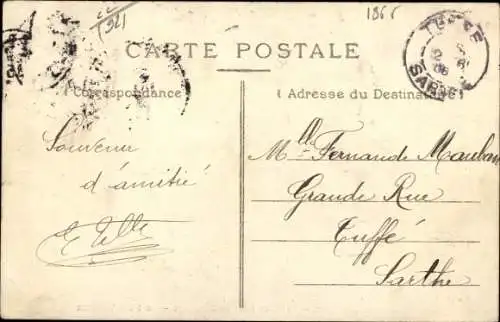 1921
1865
CARTE POSTALE
TUFFÉ
SARTHE
Correspondance
Adresse du Destinataire
Souvenir
d'amitié
Mlle Fernande
Grande Rue
Tuffé
Sarthe